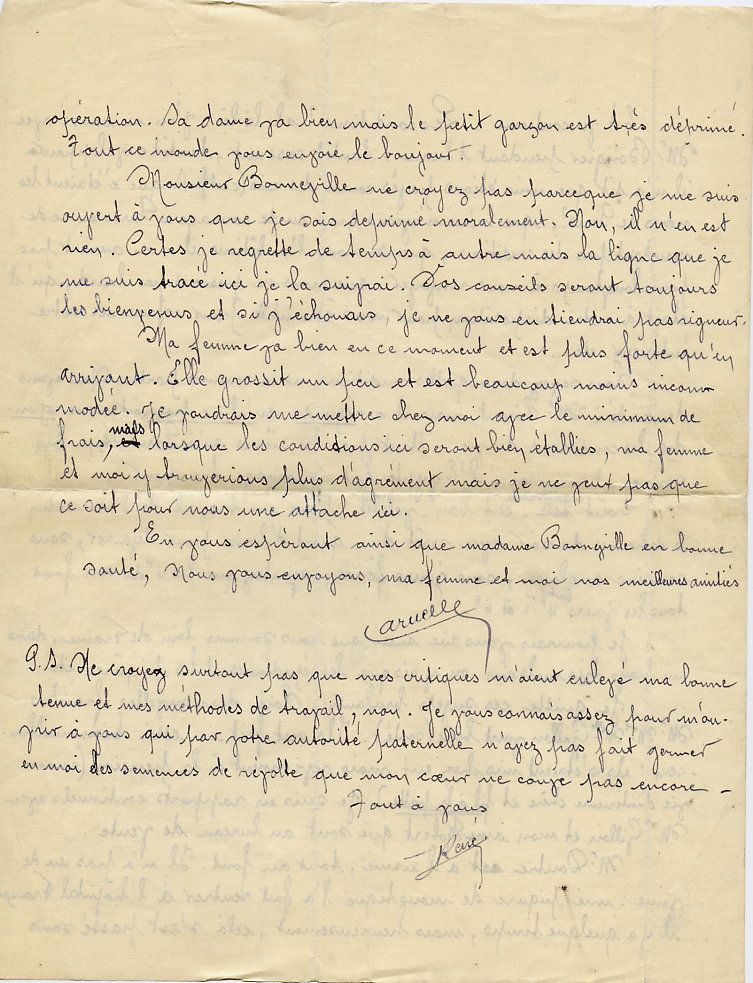 opération. Sa dame va bien mais le petit garçon est très déprimé.
Tout ce monde vous envoie le bonjour.
Monsieur Bonneville ne croyez pas parceque je me suis
ouvert à vous que je sois deprimé moralement. Non, il n'en est
rien. Certes je regrette de temps à autre mais la ligne que je
me suis tracé ici je la suivrai. Vos conseils seront toujours
les bienvenus et si j'échouais, je ne vous en tiendrai pas rigueur.
Ma femme va bien en ce moment et est plus forte qu'en
arrivant. Elle grossit un peu et est beaucoup moins incom-
modée. Je voudrais me mettre chez moi avec le minimum de
frais, mais lorsque les conditions ici seront bien établies, ma femme
et moi y trouverions plus d'agrément mais je ne veux pas que
ce soit pour nous une attache ici.
En vous espérant ainsi que madame Bonneville en bonne
santé, Nous vous envoyons, ma femme et moi nos meilleures amitiés
Caruelle
P.S. Ne croyez surtout pas que mes critiques m'aient enlevé ma bonne
tenue et mes méthodes de travail, non. Je vous connais assez pour m'ou-
vrir à vous qui par votre autorité paternelle n'avez pas fait germer
en moi des semences de révolte que mon cœur ne couve pas encore -
Tout à vous
René